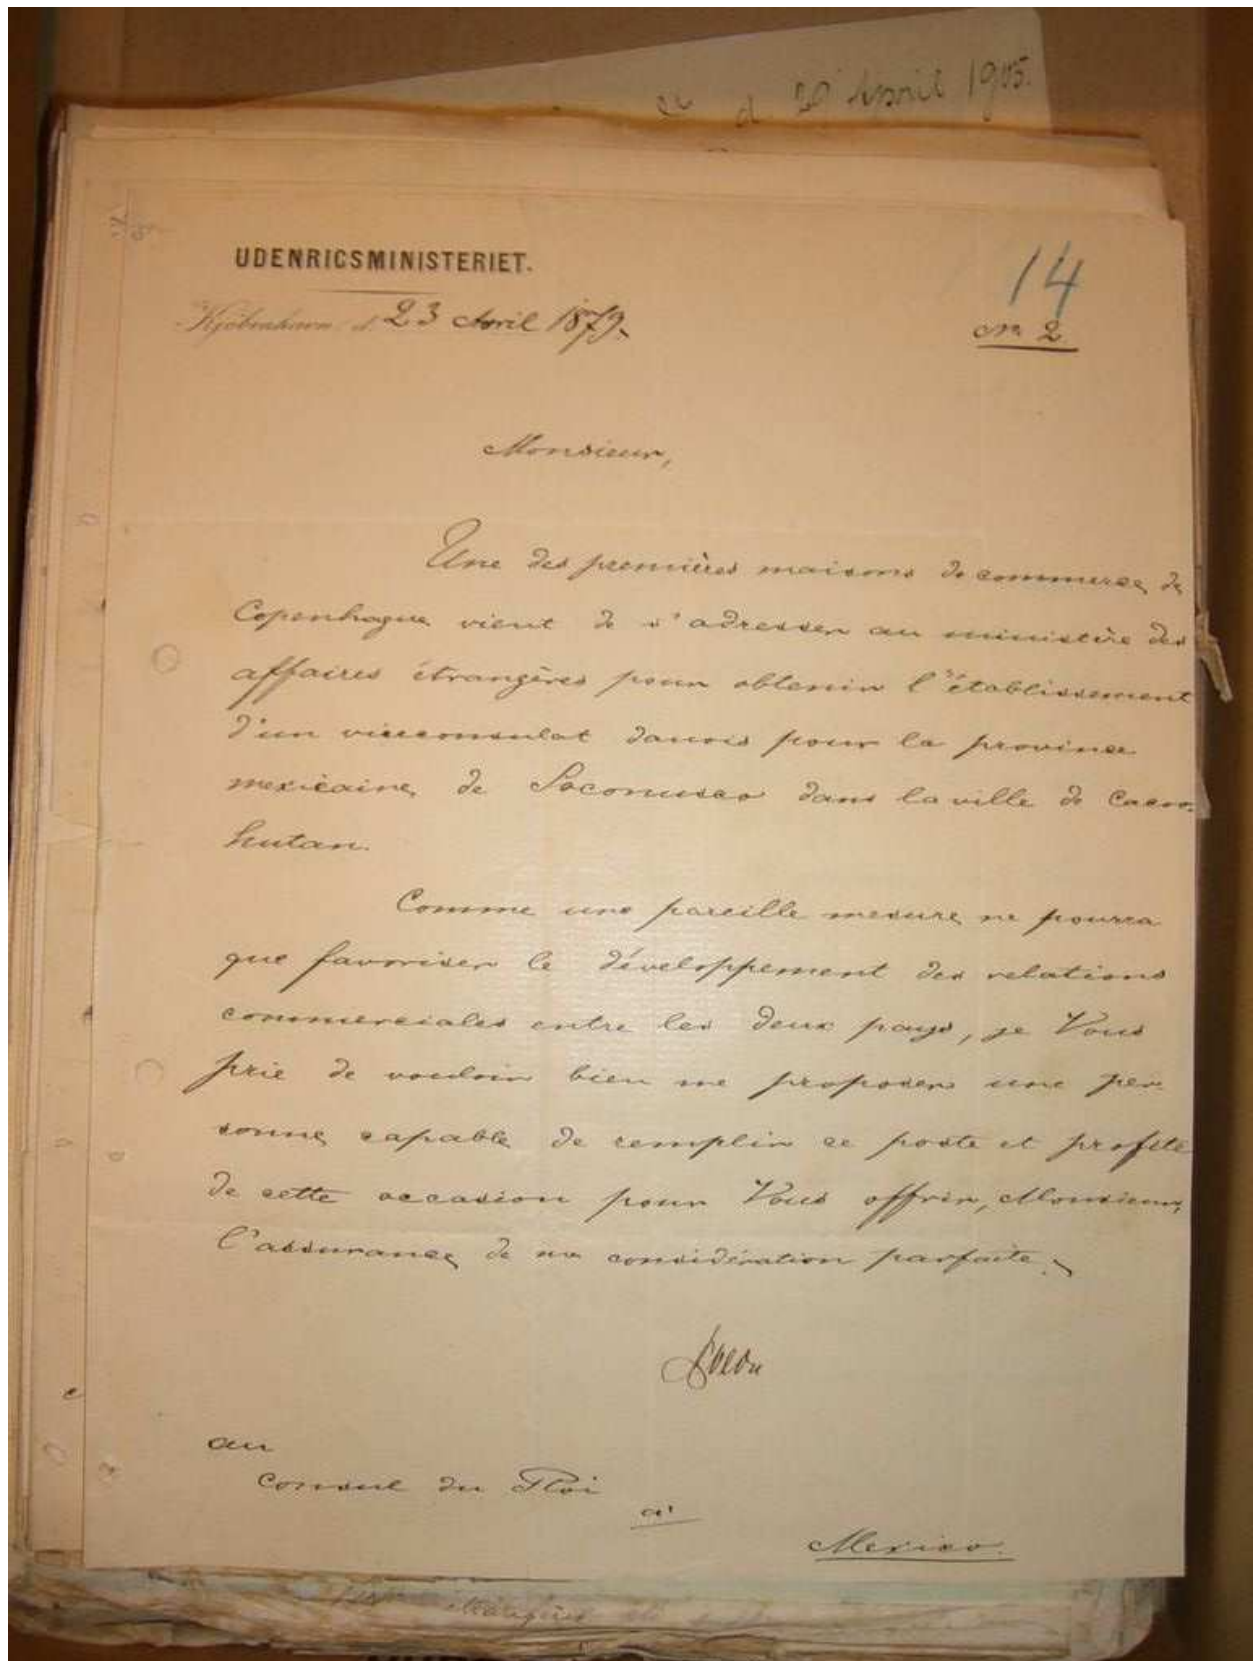 d 29 April 1905.
UDENRIGSMINISTERIET.
14
Kjøbenhavn d 23 Avril 1879.
No 2.
Monsieur,
Une des premières maisons de commerce de
Copenhague vient de s'adresser au ministère des
affaires étrangères pour obtenir l'établissement
d'un viceconsulat danois pour la province
mexicaine de Soconusco dans la ville de Caca-
hutan.
Comme une pareille mesure ne pourra
que favoriser le développement des relations
commerciales entre les deux pays, je Vous
prie de vouloir bien me proposer une per
sonne capable de remplir ce poste et profite
de cette occasion pour Vous offrir, Monsieur,
l'assurance de ma considération parfaite.
au
Consul du Roi
à
Mexico.